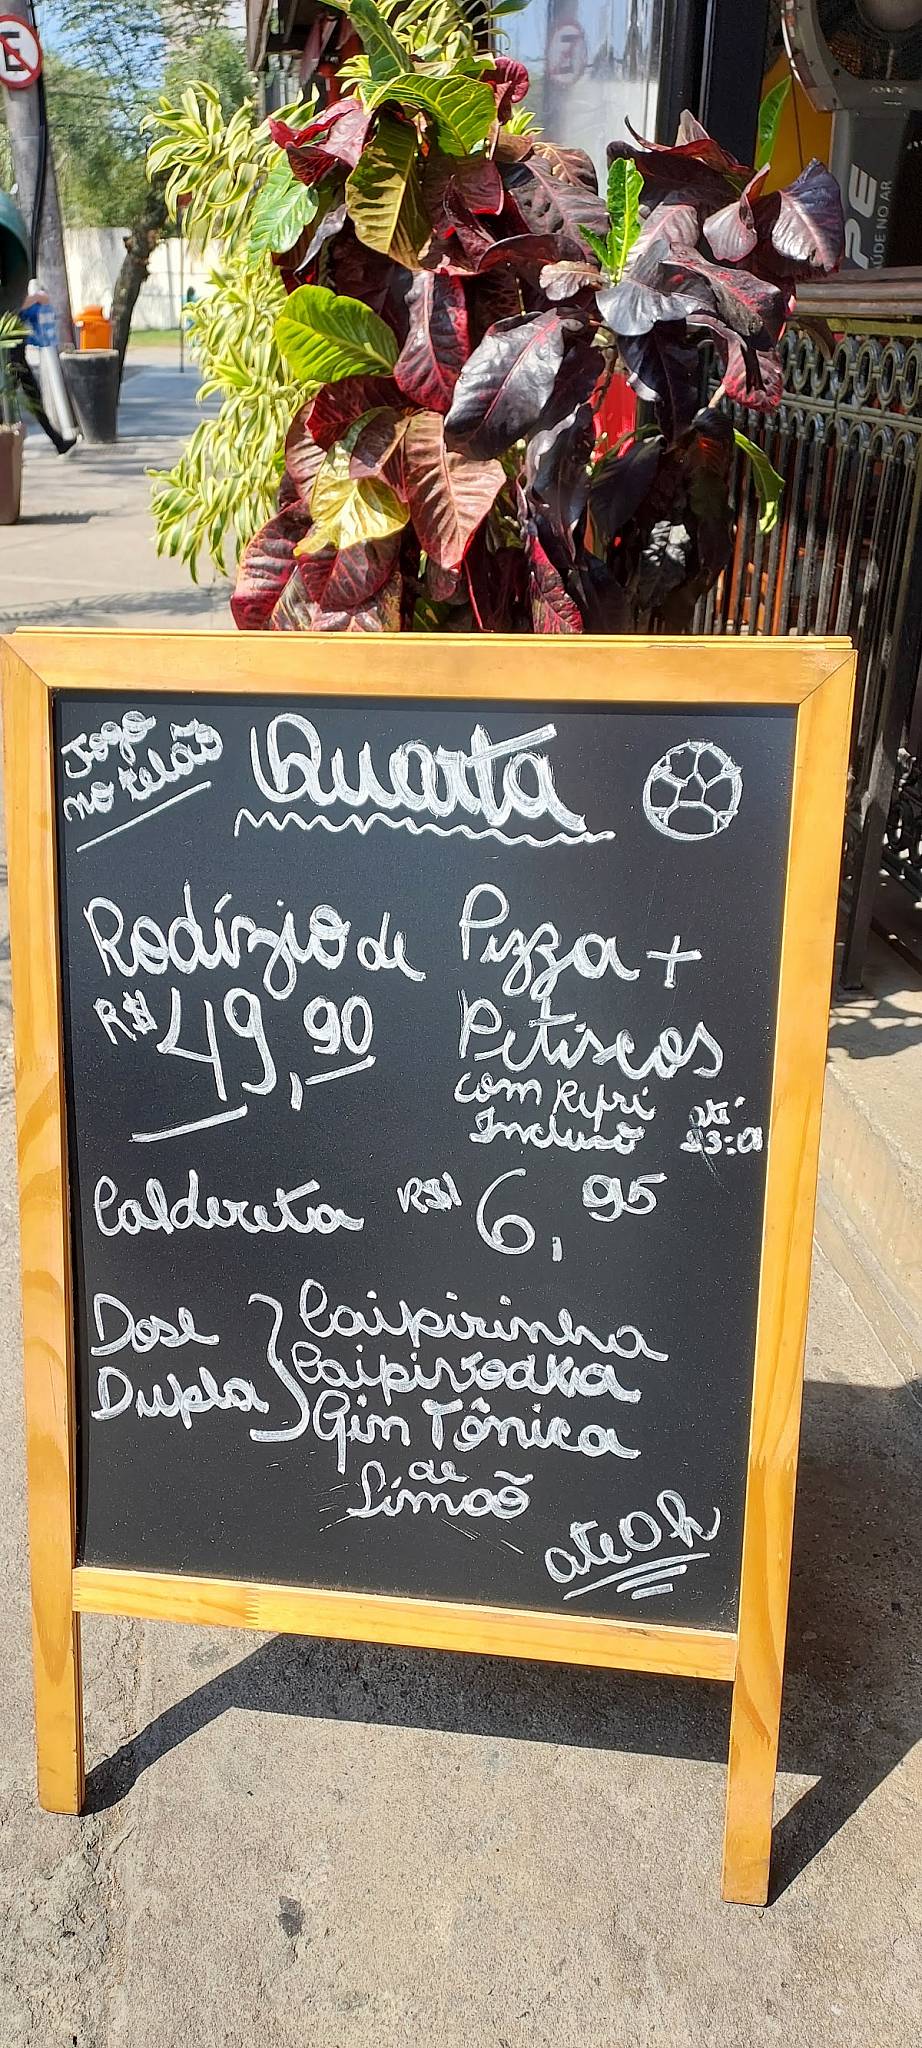 Jogo
no telão
Quarta
Rodízio de Pizza +
R$ 49,90 Petiscos
com Refri
Incluso
até
23:00
Caldereta R$ 6,95
Dose
Dupla
Caipirinha
Caipivodka
Gin Tônica
de
Limaõ
ate 0h
E
PE
ÚDE NO AR